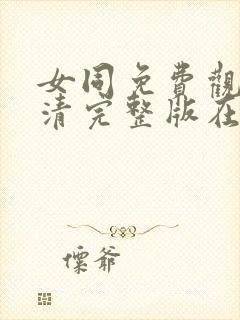 女同免費觀
清完整版在
懍爺